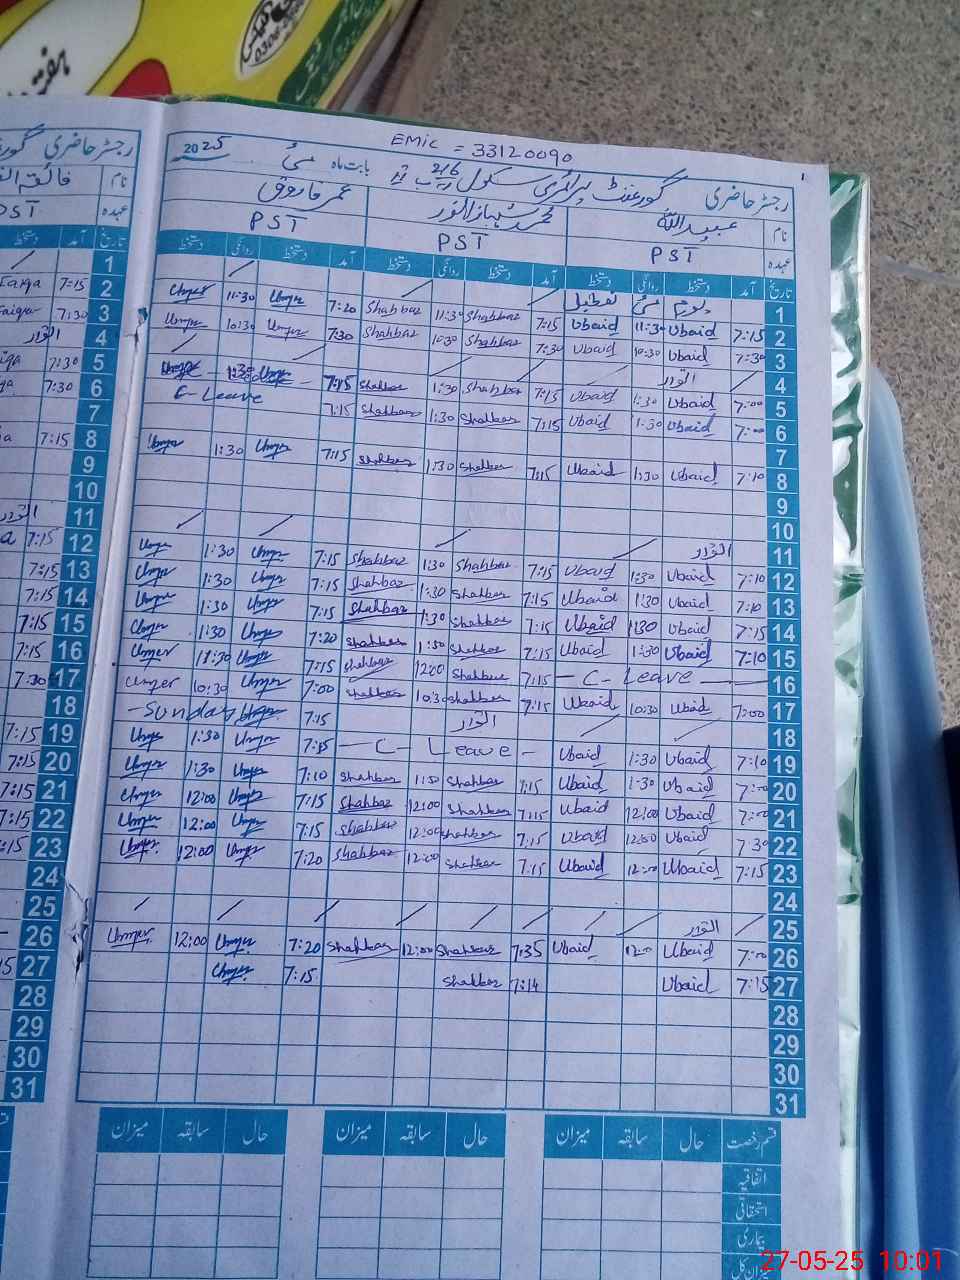 ہفتہ
0306
EMIC = 33120090
رجسٹر حاضری گورنمنٹ پرائمری سکول 216 ر ب بابت ماہ مئی 2025
نام عبیداللہ محمد شہباز انور عمر فاروق
عہدہ PST PST PST
تاریخ آمد دستخط روانگی دستخط آمد دستخط روانگی دستخط آمد دستخط روانگی دستخط
1 یوم مئی تعطیل
2 7:15 Ubaid 11:30 Ubaid 7:15 Shahbaz 11:30 Shahbaz 7:20 Umer 11:30 Umer
3 7:30 Ubaid 10:30 Ubaid 7:30 Shahbaz 10:30 Shahbaz 7:30 Umer 10:30 Umer
4 اتوار
5 7:00 Ubaid 1:30 Ubaid 7:15 Shahbaz 1:30 Shahbaz 7:15 Umer 1:30 Umer
6 7:00 Ubaid 1:30 Ubaid 7:15 Shahbaz 1:30 Shahbaz 7:15 C-Leave
7
8 7:10 Ubaid 1:30 Ubaid 7:15 Shahbaz 1:30 Shahbaz 7:15 Umer 1:30 Umer
9
10
11 اتوار
12 7:10 Ubaid 1:30 Ubaid 7:15 Shahbaz 1:30 Shahbaz 7:15 Umer 1:30 Umer
13 7:10 Ubaid 1:30 Ubaid 7:15 Shahbaz 1:30 Shahbaz 7:15 Umer 1:30 Umer
14 7:15 Ubaid 1:30 Ubaid 7:15 Shahbaz 1:30 Shahbaz 7:15 Umer 1:30 Umer
15 7:10 Ubaid 1:30 Ubaid 7:15 Shahbaz 1:30 Shahbaz 7:20 Umer 1:30 Umer
16 - C- Leave - 7:15 Shahbaz 12:00 Shahbaz 7:15 Umer Umer
17 7:00 Ubaid 10:30 Ubaid 7:15 Shahbaz 10:30 Shahbaz 7:00 Umer 10:30 Umer
18 اتوار 7:15 Umer -Sunday
19 7:10 Ubaid 1:30 Ubaid - C- Leave - 7:15 Umer 1:30 Umer
20 7:00 Ubaid 1:30 Ubaid 7:15 Shahbaz 1:30 Shahbaz 7:10 Umer 1:30 Umer
21 7:00 Ubaid 12:00 Ubaid 7:15 Shahbaz 12:00 Shahbaz 7:15 Umer 12:00 Umer
22 7:30 Ubaid 12:00 Ubaid 7:15 Shahbaz 12:00 Shahbaz 7:15 Umer 12:00 Umer
23 7:15 Ubaid 12:00 Ubaid 7:15 Shahbaz 12:00 Shahbaz 7:20 Umer 12:00 Umer
24
25 اتوار
26 7:00 Ubaid 12:00 Ubaid 7:35 Shahbaz 12:00 Shahbaz 7:20 Umer 12:00 Umer
27 7:15 Ubaid 7:14 Shahbaz 7:15 Umer
28
29
30
31
قسم رخصت حال سابقہ میزان حال سابقہ میزان حال سابقہ میزان
اتفاقیہ
استحقاقی
بیماری
میزان کل
رجسٹر حاضری
نام
عہدہ PST
تاریخ آمد دستخط
1
2 7:15 Faiqa
3 7:30 Faiqa
4 اتوار
5 7:30
6 7:30
7
8 7:15
9
10
11 اتوار
12 7:15
13 7:15
14 7:15
15 7:15
16 7:15
17 7:30
18
19 7:15
20 7:15
21 7:15
22 7:15
23
24
25
26
27
28
29
30
31
27-05-25 10:01